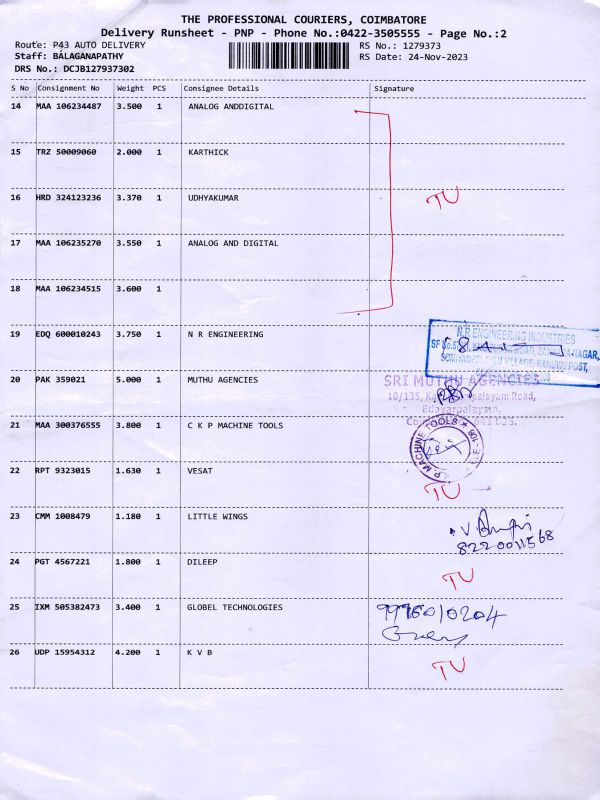 THE PROFESSIONAL COURIERS, COIMBATORE
Delivery Runsheet - PNP - Phone No.:0422-3505555 - Page No.:2
Route: P43 AUTO DELIVERY RS No.: 1279373
Staff: BALAGANAPATHY RS Date: 24-Nov-2023
DRS No.: DCJB127937302
S No Consignment No Weight PCS Consignee Details Signature
14 MAA 106234487 3.500 1 ANALOG ANDDIGITAL
15 TRZ 50009060 2.000 1 KARTHICK
16 HRD 324123236 3.370 1 UDHYAKUMAR TU
17 MAA 106235270 3.550 1 ANALOG AND DIGITAL
18 MAA 106234515 3.600 1
19 EDQ 600010243 3.750 1 N R ENGINEERING
N.R ENGINEERING INDUSTRIES
VILLAGE, KANUVAI POST,
20 PAK 359021 5.000 1 MUTHU AGENCIES
SRI MUTHU AGENCIES
10/135, Road,
Edayarpalayam,
21 MAA 300376555 3.800 1 C K P MACHINE TOOLS
MACHINE TOOLS
22 RPT 9323015 1.630 1 VESAT TU
23 CMM 1008479 1.180 1 LITTLE WINGS
8220011568
24 PGT 4567221 1.800 1 DILEEP TU
25 IXM 505382473 3.400 1 GLOBEL TECHNOLOGIES
26 UDP 15954312 4.200 1 K V B TU